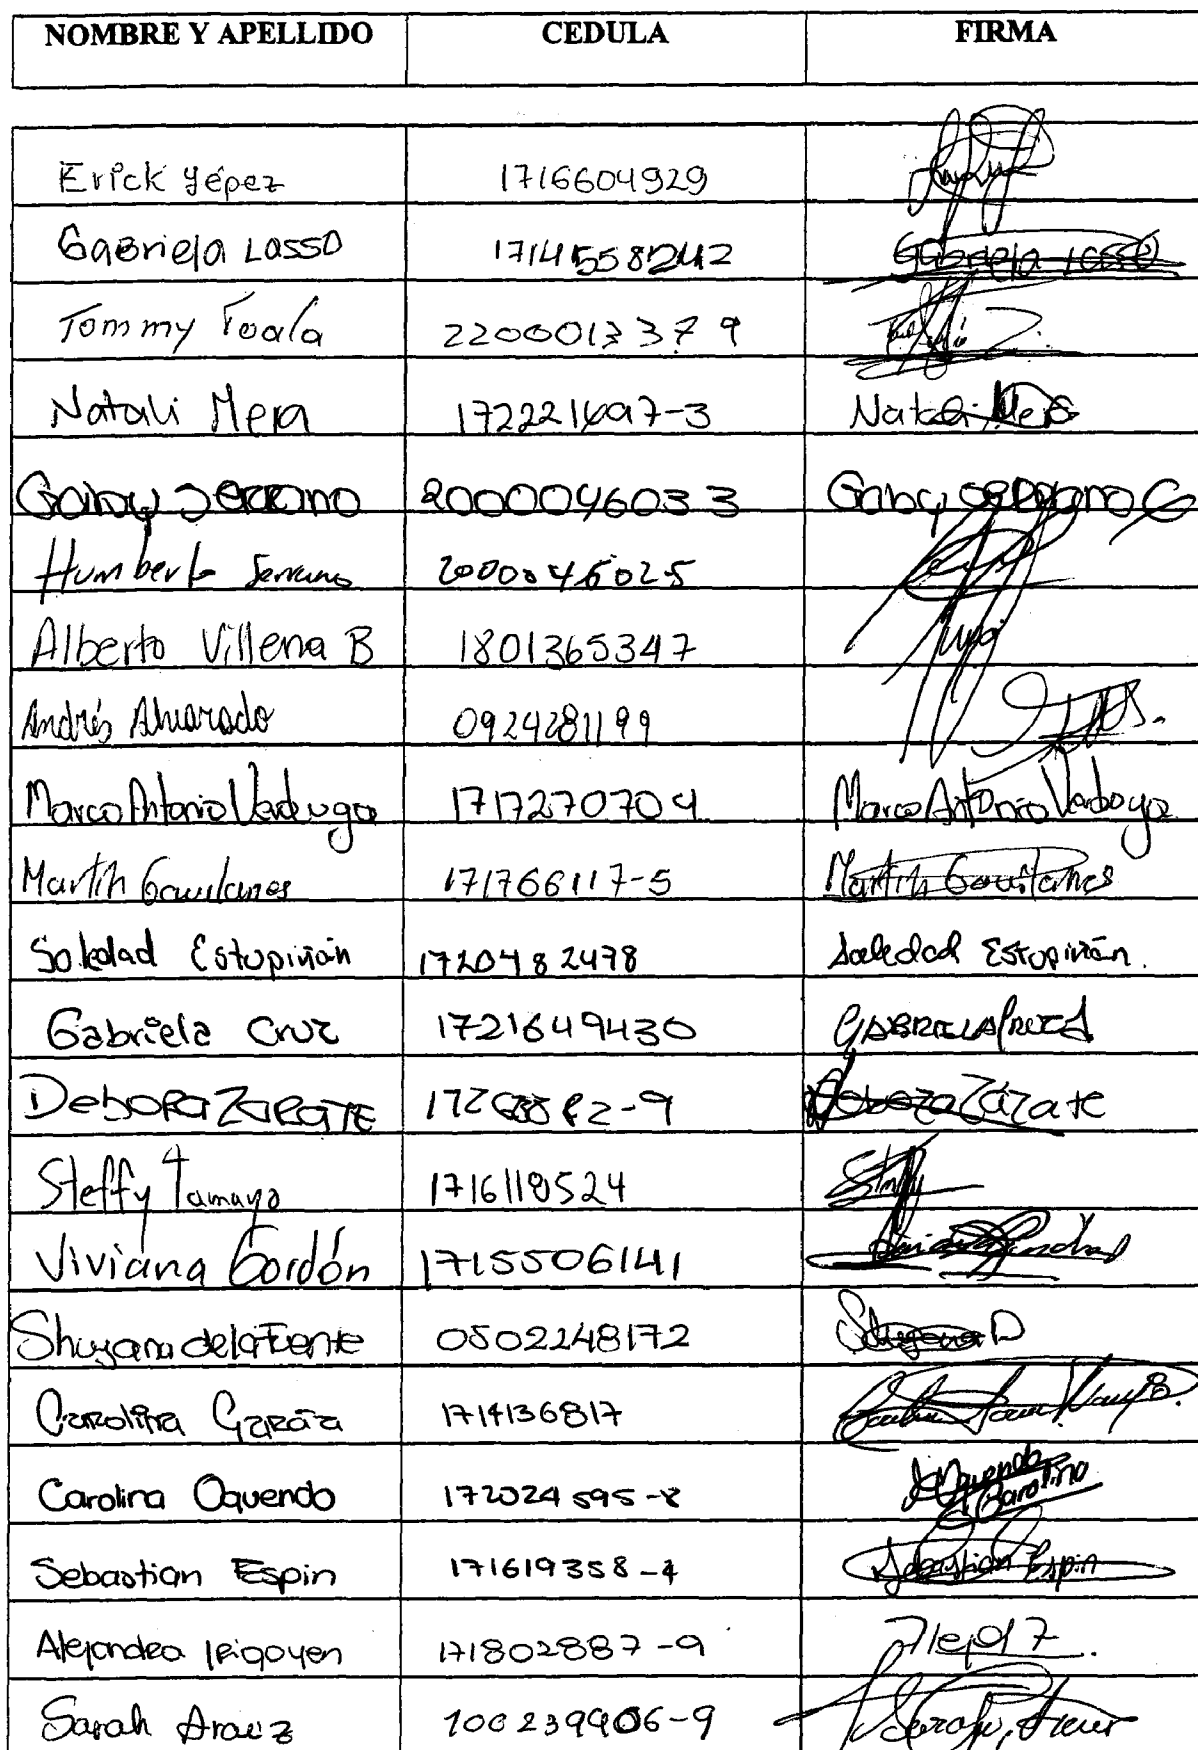 NOMBRE Y APELLIDO CEDULA FIRMA
Erick Yépez 1716604929
Gabriela Lasso 1714558242 Gabriela Lasso
Tommy Toala 2200013379
Natali Mera 172221697-3 Natali Mera
Gaby Serrano 2000046033 Gaby Serrano G
Humberto Serrano 2000046025
Alberto Villena B 1801365347
Andrés Alvarado 0924281199
Marco Antonio Verdugo 1717270704 Marco Antonio Verdugo
Martín Gavilanes 171766117-5 Martín Gavilanes
Soledad Estupiñán 1720482478 Soledad Estupiñán.
Gabriela Cruz 1721649430 GABRIELA CRUZ
Debora ZARATE Debora Zárate
Steffy Tamayo 1716118524 Steffy
Viviana Gordón 1715506141
Shuyana de la Fuente 0502248172 Shuyana D
Carolina García 1714136817
Carolina Oquendo 172024595-8 Oquendo Carolina
Sebastian Espin 171619358-4 Sebastian Espin
Alejandra Irigoyen 171802887-9
Sarah Arauz 100239906-9 Sarah Arauz